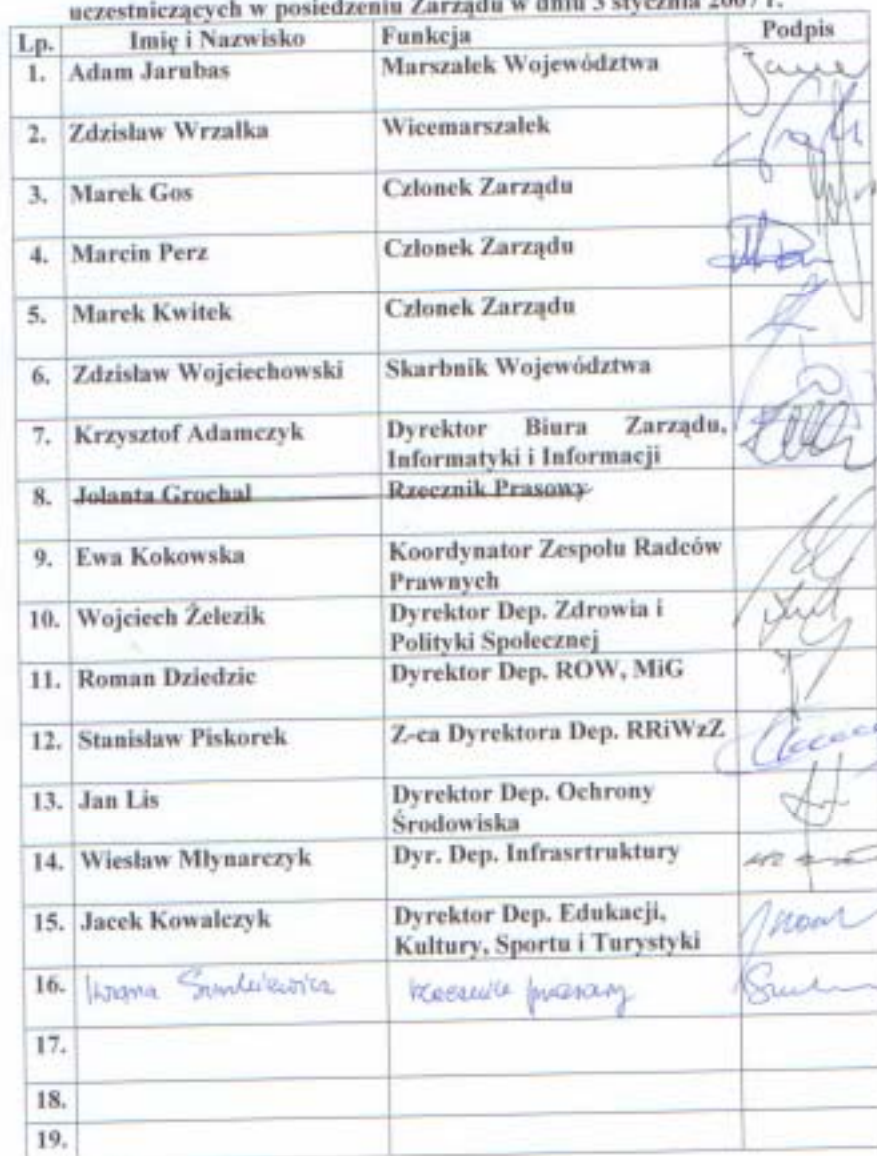 uczestniczących w posiedzeniu Zarządu w dniu 3 stycznia 2007 r.
Lp. Imię i Nazwisko Funkcja Podpis
1. Adam Jarubas Marszałek Województwa
2. Zdzisław Wrzałka Wicemarszałek
3. Marek Gos Członek Zarządu
4. Marcin Perz Członek Zarządu
5. Marek Kwitek Członek Zarządu
6. Zdzisław Wojciechowski Skarbnik Województwa
7. Krzysztof Adamczyk Dyrektor Biura Zarządu,
Informatyki i Informacji
8. Jolanta Grochal Rzecznik Prasowy
9. Ewa Kokowska Koordynator Zespołu Radców
Prawnych
10. Wojciech Żelezik Dyrektor Dep. Zdrowia i
Polityki Społecznej
11. Roman Dziedzic Dyrektor Dep. ROW, MiG
12. Stanisław Piskorek Z-ca Dyrektora Dep. RRiWzZ
13. Jan Lis Dyrektor Dep. Ochrony
Środowiska
14. Wiesław Młynarczyk Dyr. Dep. Infrasrtruktury
15. Jacek Kowalczyk Dyrektor Dep. Edukacji,
Kultury, Sportu i Turystyki
16. Iwona Sinkiewicz rzecznik prasowy
17.
18.
19.